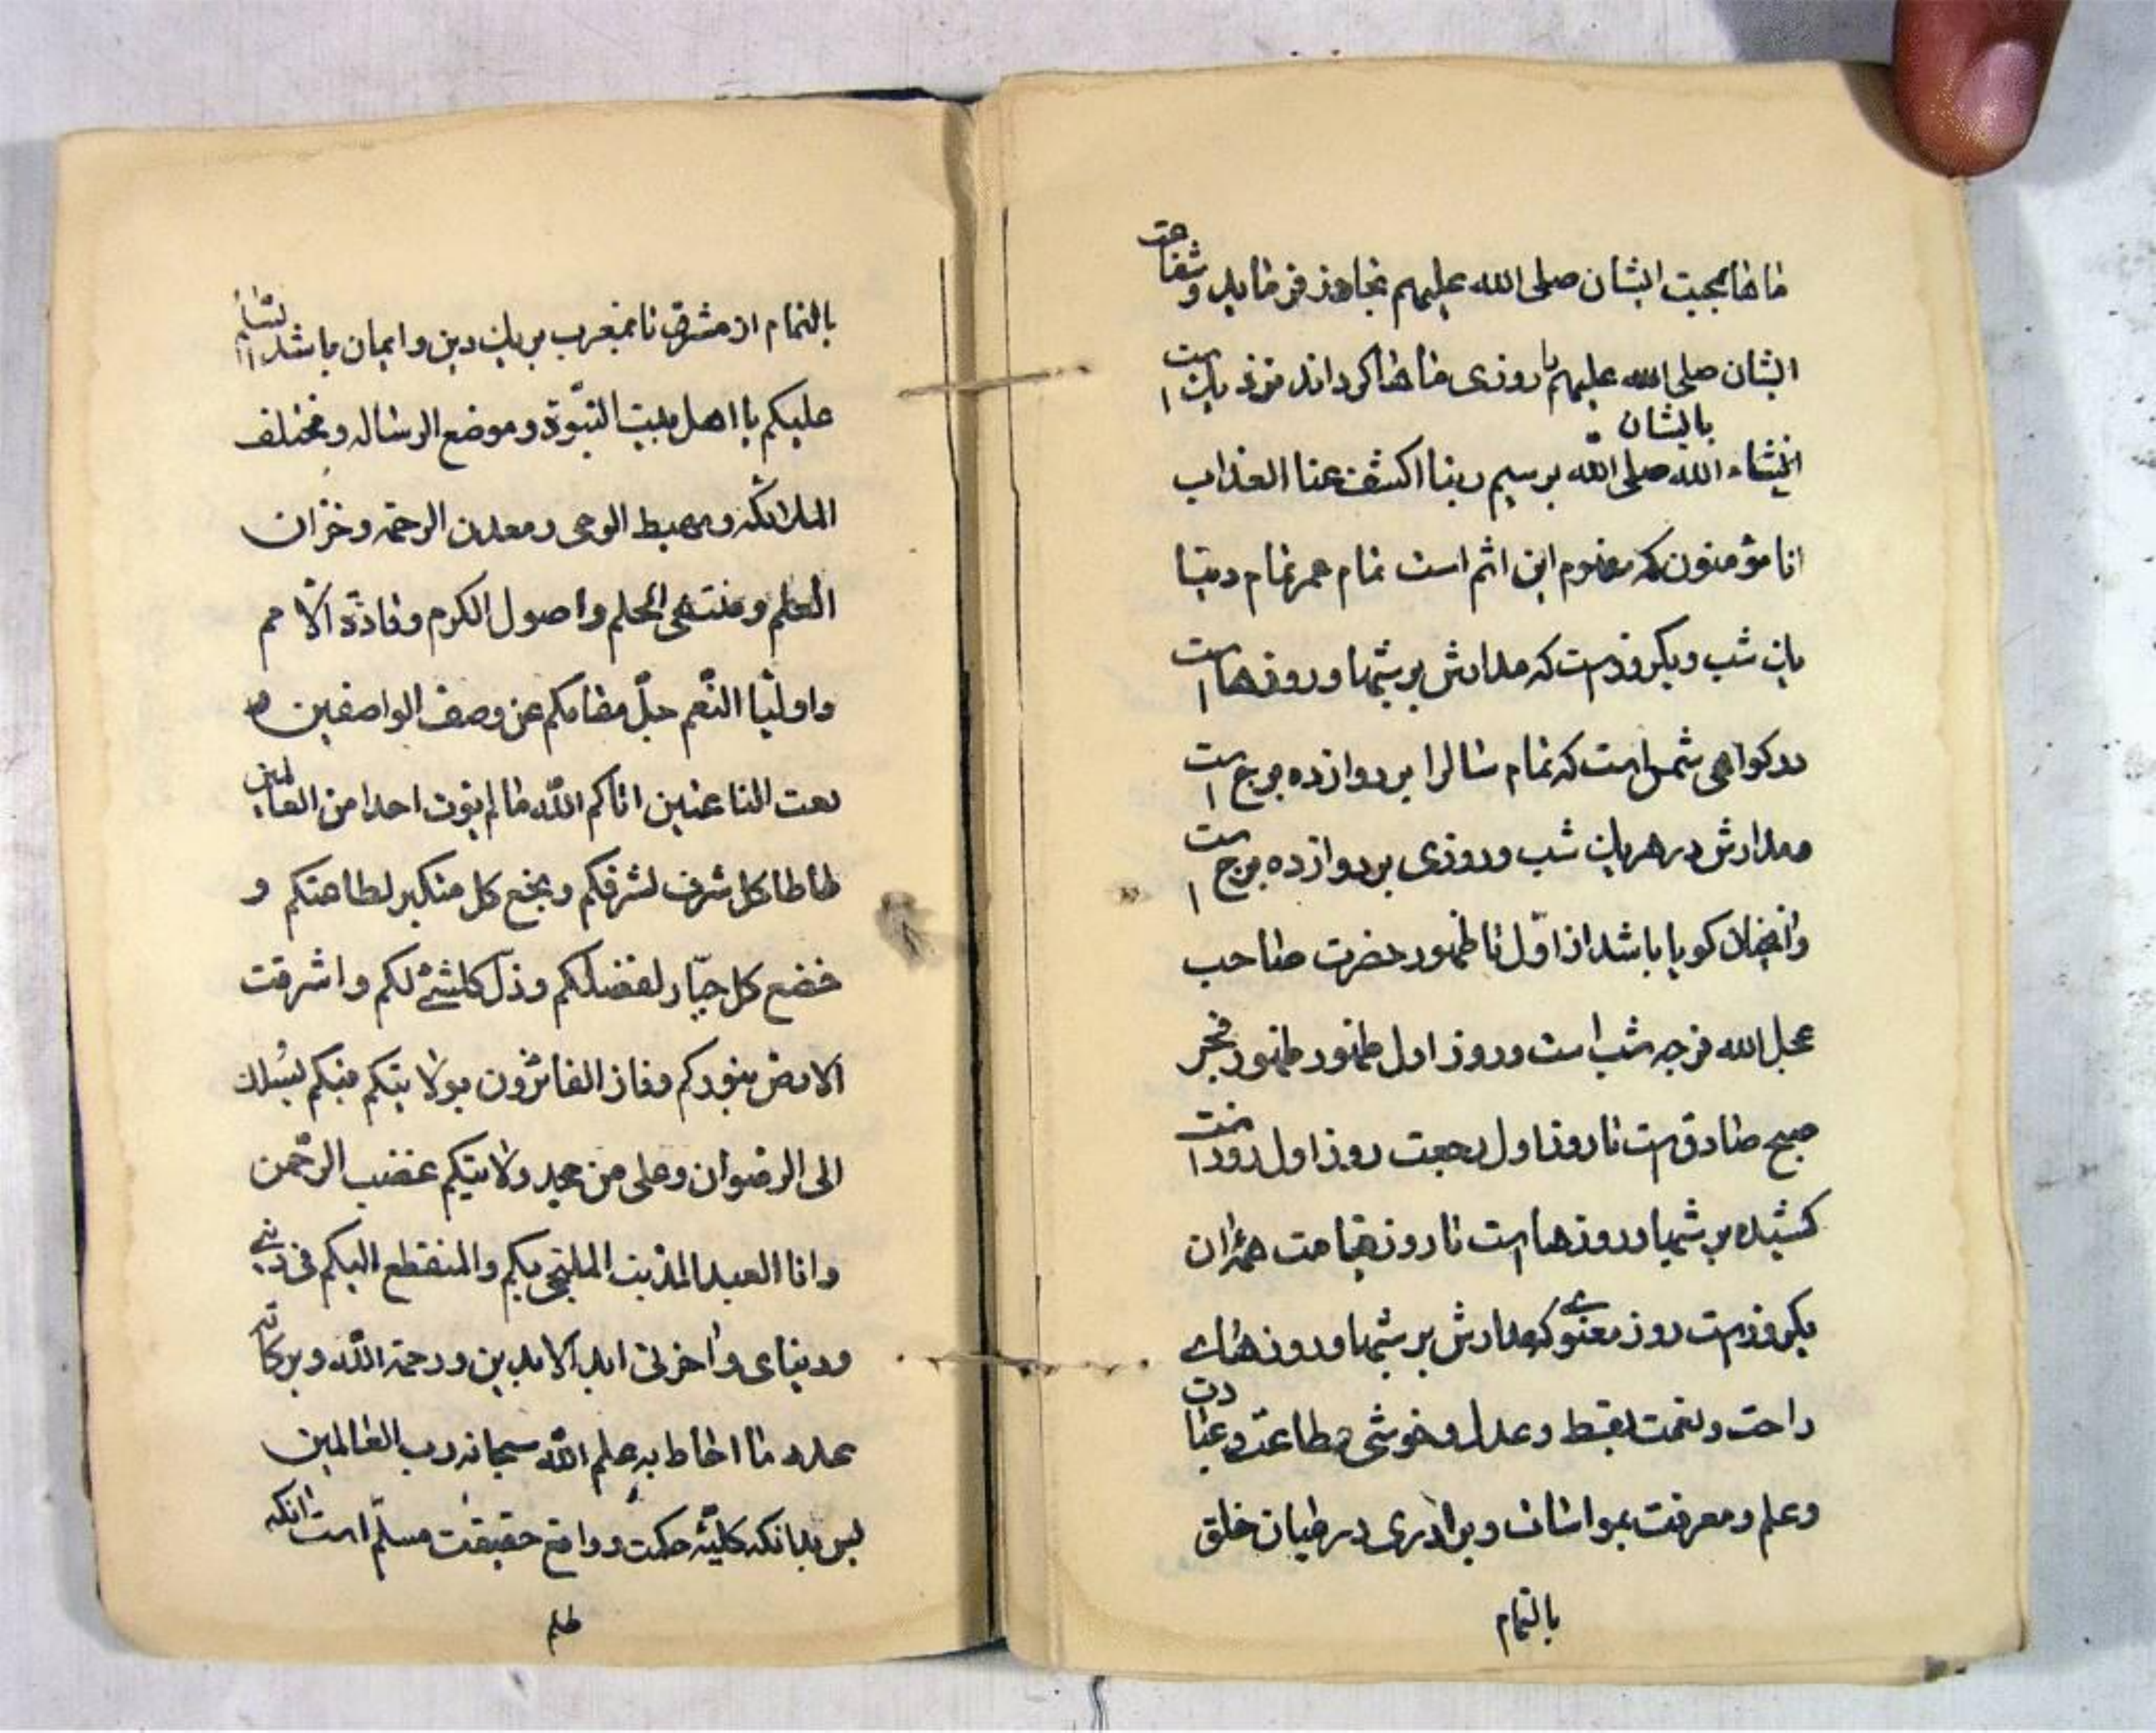 ماها بمحبت ایشان صلی الله علیهم تجاوز فرماید و شفاعت
ایشان صلی الله علیهم با روزی ماها گرداند نزدیک است
انشاء الله بایشان صلی الله برسیم ربنا اکشف عنا العذاب
انا مؤمنون که مفهوم این اثم است تمام عمر تمام دنیا
یک شب و یکروز است که مدارش بر شبها و روزها است
دو کواهی شمس است که تمام سالرا بر دوازده برج است
ومدارش در هر یک شب و روزی بر دوازده برج است
گویا باشد از اول تا ظهور حضرت صاحب
عجل الله فرجه شب است و روز اول ظهور ظهور فجر
صبح صادق است تا روز اول رجعت روز اول روز است
کشیده بر شبها و روزها است تا روز قیامت همۀ ان
یکروز است روز معنوی که مدارش بر شبها و روزهای
راحت و نعمت بقسط و عدل و خوشی وطاعت و عبادت
وعلم و معرفت بمواسات و برادری در میان خلق
بالتمام
بالتمام از مشرق تا بمغرب بر یک دین و ایمان باشد السلام
علیکم یا اهل بیت النبوة و موضع الرساله و مختلف
الملائکه و مهبط الوحی و معدن الرحمة و خزان
العلم و منتهی الحلم و اصول الکرم و قادة الامم
واولیا النعم جل مقامکم عن وصف الواصفین و
نعت الناعتین اتاکم الله ما لم یؤت احدا من العالمین
طاطا کل شرف لشرفکم و بخع کل متکبر لطاعتکم و
خضع کل جبار لفضلکم و ذل کلشئ لکم و اشرقت
الارض بنورکم و فاز الفائزون بولایتکم منکم یسلک
الی الرضوان و علی من جحد ولایتکم غضب الرحمن
وانا العبد المذنب الملتجی بکم و المنقطع الیکم فی دینی
ودنیای و اخرتی ابد الابدین و رحمة الله و برکاته
عدد ما احاط به علم الله سبحانه رب العالمین
پس بدانکه کلیه حکمت و واقع حقیقت مسلم است انکه